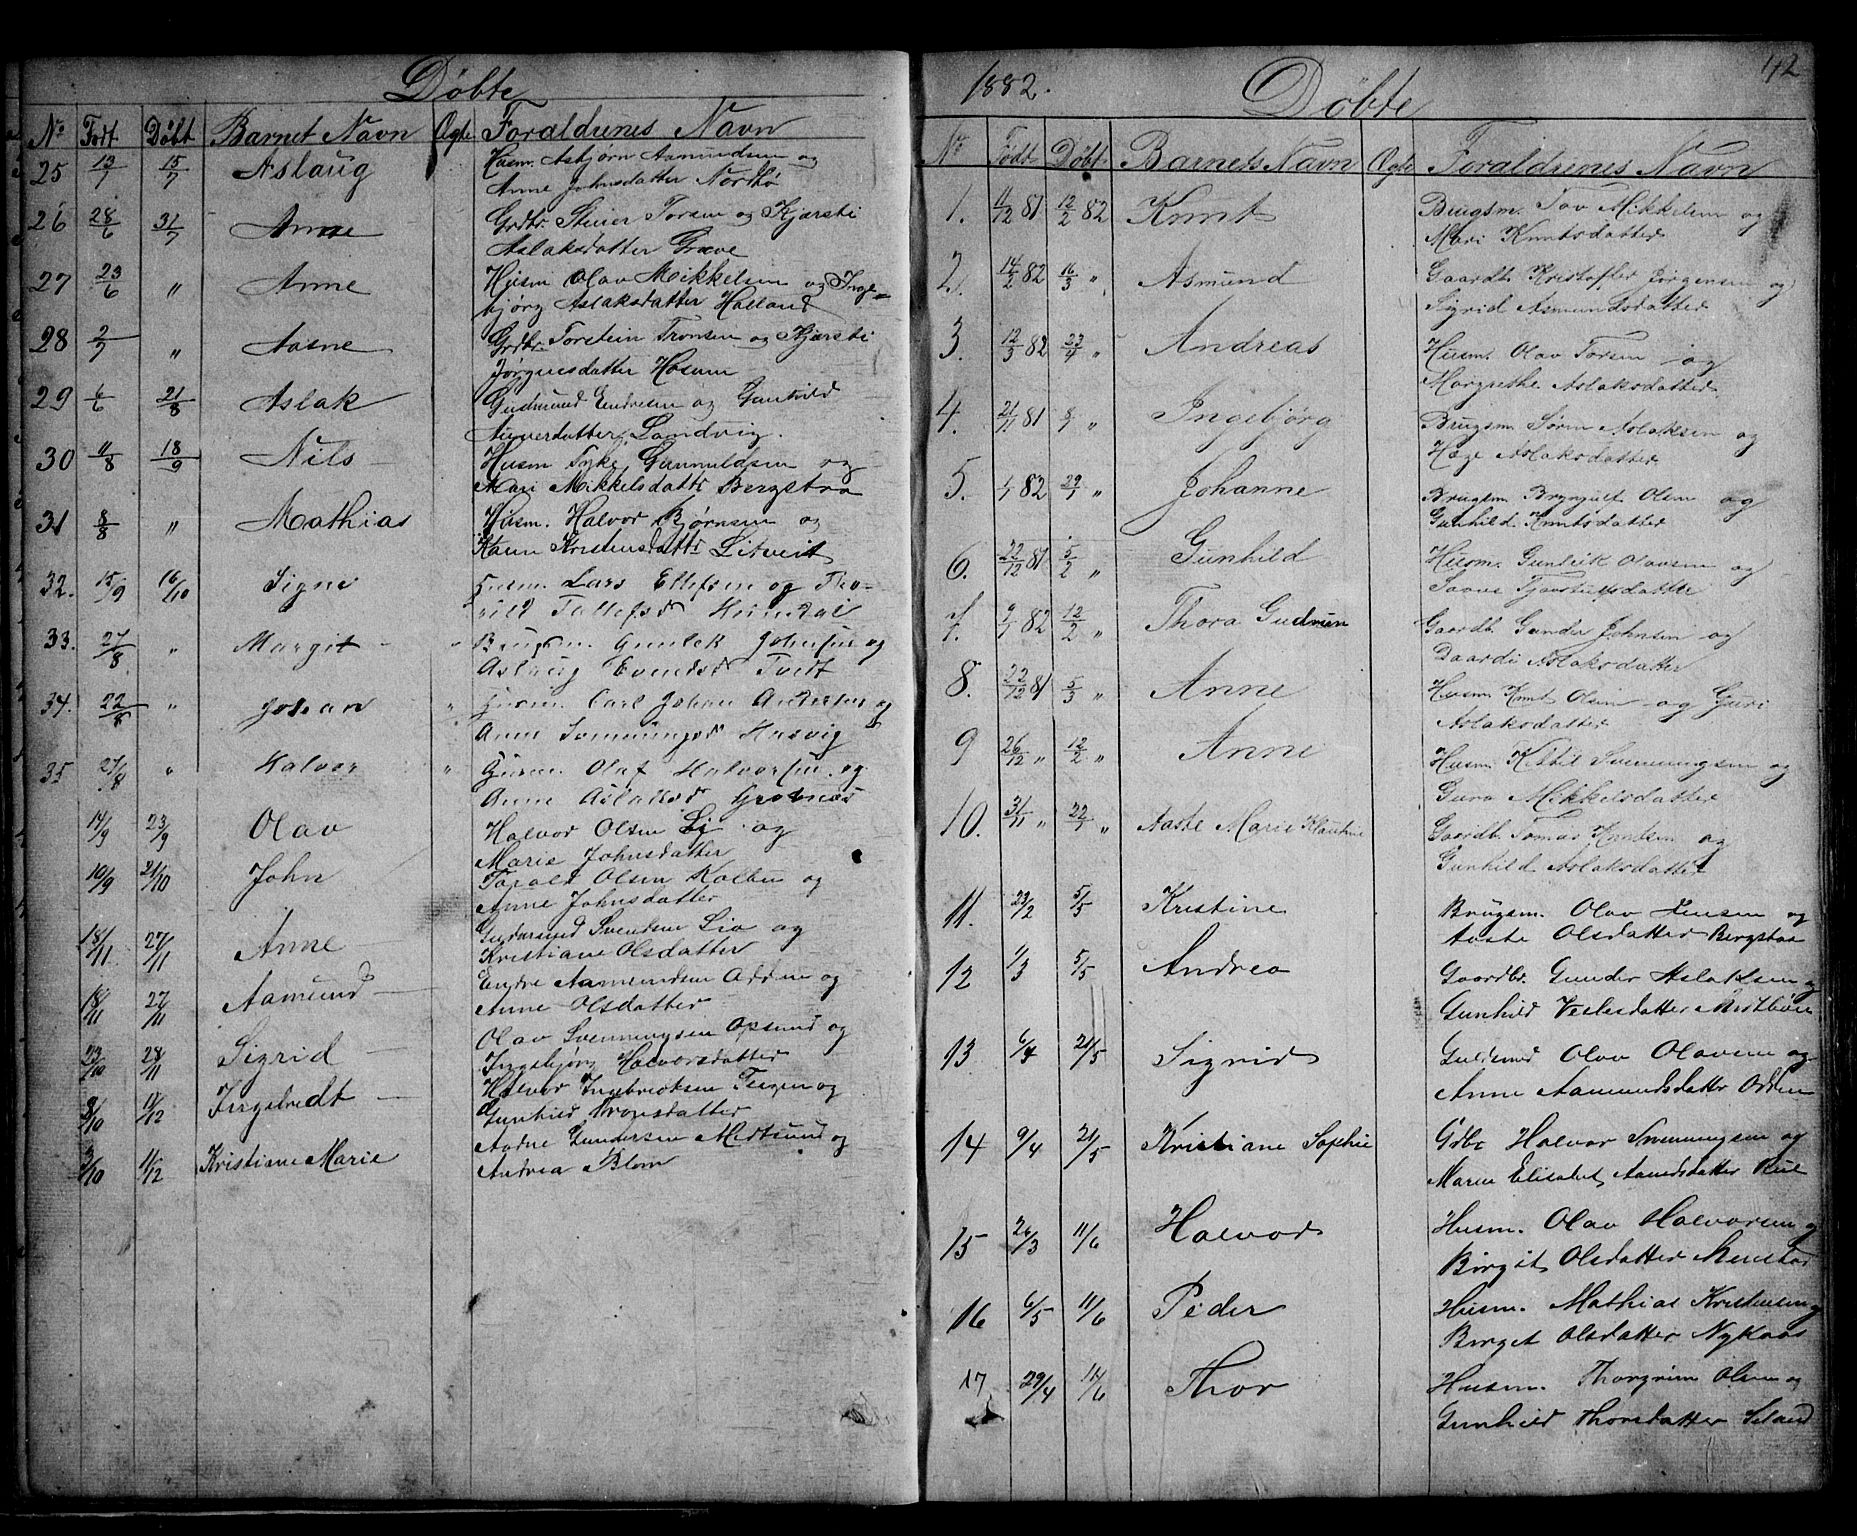 Døbte
No Født Døbt Barnet Navn Ægte Foraldrenes Navn
25 13/7 15/7 Aslaug Husm. Asbjørn Aamundsen og
Anne Johnsdatter Northø
26 28/6 31/7 Anne Grdbr. Steier Torsen og Kjærsti
Aslaksdatter Græve
27 23/6 " Anne Husm Olav Mikkelsen og Inge-
bjørg Aslaksdatter Halland
28 2/7 " Aasne Grdbr. Torstein Tronsen og Kjærsti
Jørgensdatter Hosum
29 6/6 21/8 Aslak Gudmund Endresen og Gunhild
Landvig.
30 11/8 18/9 Nils Husm Tyke Gunnuldsen og
Mari Mikkelsdattr Bergstrø
31 8/8 " Mathias Husm. Halvor Bjørnsen og
Karen Kristensdattr Litveit
32. 15/9 16/10 Signe Husm. Lars Ellefsen og Tho-
rild Tallefsd
33. 27/8. " Margit " Brugsm. Gunlek Johnsen og
Aslaug Evendsd Tvedt
34. 22/8 " Johan " Husm. Carl Johan Andersen og
Anne Husvig
35 27/8 " Halvor " Husm. Olaf Halvorsen og
Anne Aslaksd
14/9 23/9 Olav Halvor Olsen Li og
Marie Johnsdatter
10/9 21/10 John Tarald Olsen Kolben og
Anne Johnsdatter
18/11 27/11 Anne Svendsen Lia og
Kristiane Olsdatter
18/11 27/11 Aamund Endre Aamundsen Odden og
Anne Olsdatter
23/10 28/11 Sigrid Olav Svenningsen Opsund og
Ingebjørg Halvorsdatter
9/10 11/12 Ingebredt Halvor Ingebrektsen og
Gunhild Tronsdatter
3/10 11/12 Kristiane Marie Aadne Gundersen Midtsund og
Andrea Blom
42
1882. Døbte
No Født Døbt Barnets Navn Ægte Foraldrenes Navn
1. 11/12 81 12/2 82 Knut Brugsm. Tov Mikkelsen og
Mari Knutsdatter
2. 14/2 82 16/3 " Asmund Gaardb. Kristoffer Jørgensen og
Sigrid Asmundsdatter
3. 12/3 82 23/4 " Andreas Husm. Olav Torsen og
Margrethe Aslaksdatter
4. 21/11 81 " Ingebjørg Brugsm Søren Aslaksen og
Hæge Aslaksdatter
5. 1/1 82 29/1 " Johanne Brugsm Brynjult Olsen og
Gunhild Knutsdatter
6. 22/12 81 5/2 " Gunhild Husm. Gunleik Olavsen og
7. 82 12/2 " Thora Gudrun Gaardb. Gunder Johnsen og
Daardi Aslaksdatter
8. 22/12 81 5/3 " Anne Husm Knut Olsen og Guri
Aslaksdatter
9 26/12 " 12/2 " Anne Husm. Kittil Svenningsen og
Guro Mikkelsdatter
10. 31/11 " 22/1 " Aaste Marie Klaudine Gaardb. Tomas Knutsen og
Gunhild Aslaksdatter
11. 23/2 5/5 Kristine Brugsm. Olav Jensen og
Aaste Olsdatter Bergstaa
12 1/3 5/5 Andrea Gaardbr. Gunder Aslaksen og
Gunhild Veslesdatter Midtbøen
13. 6/4 21/5 Sigrid Olav Olavsen og
Anne Aamundsdatter Odden
14 9/4 21/5 Kristiane Sophie Grbr Halvor Svenningsen og
Maren Elisabet Aamdsdatter
15 26/3 11/6 Halvor Husm. Olav Halvorsen og
Birgit Olsdatter Menstad
16 6/5 11/6 Peder Husm. Mathias Kristensen og
Birget Olsdatter Nykaas
17 29/4 11/6 Thor Husm. Thorgrim Olsen og
Gunhild Thorsdatter Seland